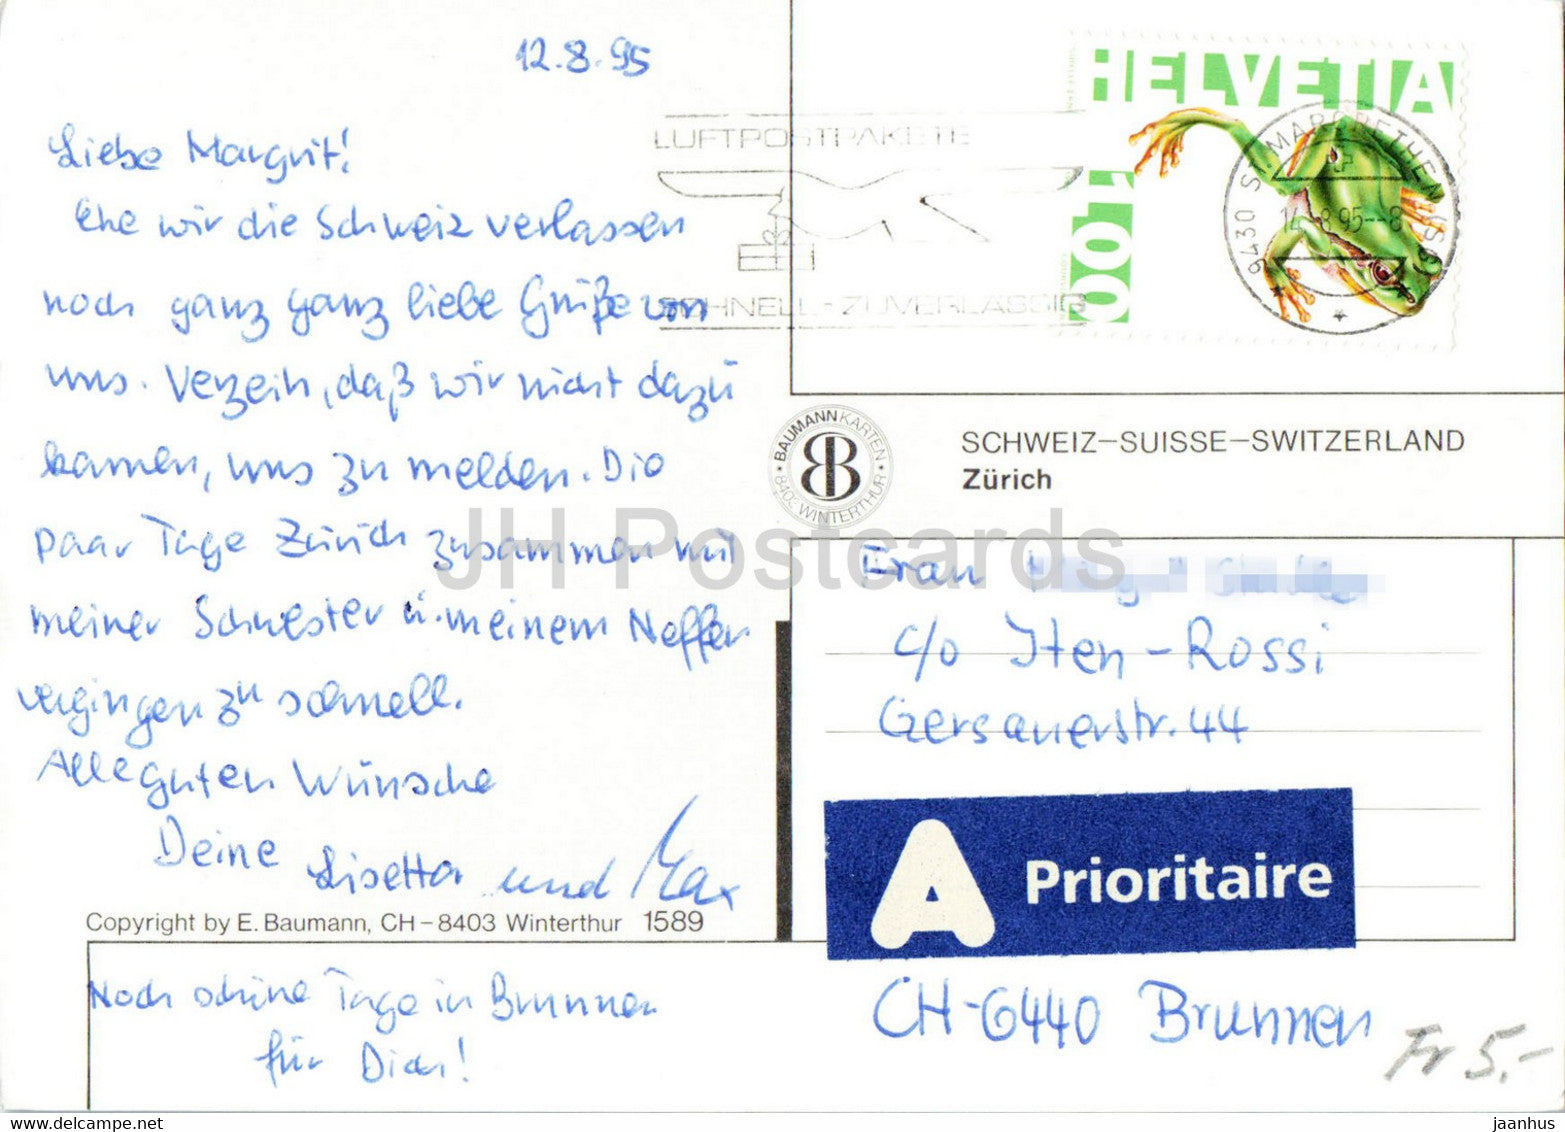 12.8.95
Liebe Margrit!
Ehe wir die Schweiz verlassen
noch ganz ganz liebe Grüße von
uns. Verzeih, daß wir nicht dazu
kamen, uns zu melden. Die
paar Tage Zürich zusammen mit
meiner Schwester u. meinem Neffen
vergingen zu schnell.
Alle guten Wünsche
Deine Lisetta und Max
Copyright by E. Baumann, CH-8403 Winterthur 1589
Noch schöne Tage in Brunnen
für Dich!
LUFTPOSTPAKETE
SCHNELL-ZUVERLÄSSIG
HELVETIA
1.00
9430 ST. MARGRETHEN (SG)
14.-8.95--8
BAUMANNKARTEN
8403 WINTERTHUR
SCHWEIZ-SUISSE-SWITZERLAND
Zürich
JH Postcards
Frau
c/o Iten-Rossi
Gersauerstr. 44
A Prioritaire
CH-6440 Brunnen
Fr 5.-
www.delcampe.net
jaanhus